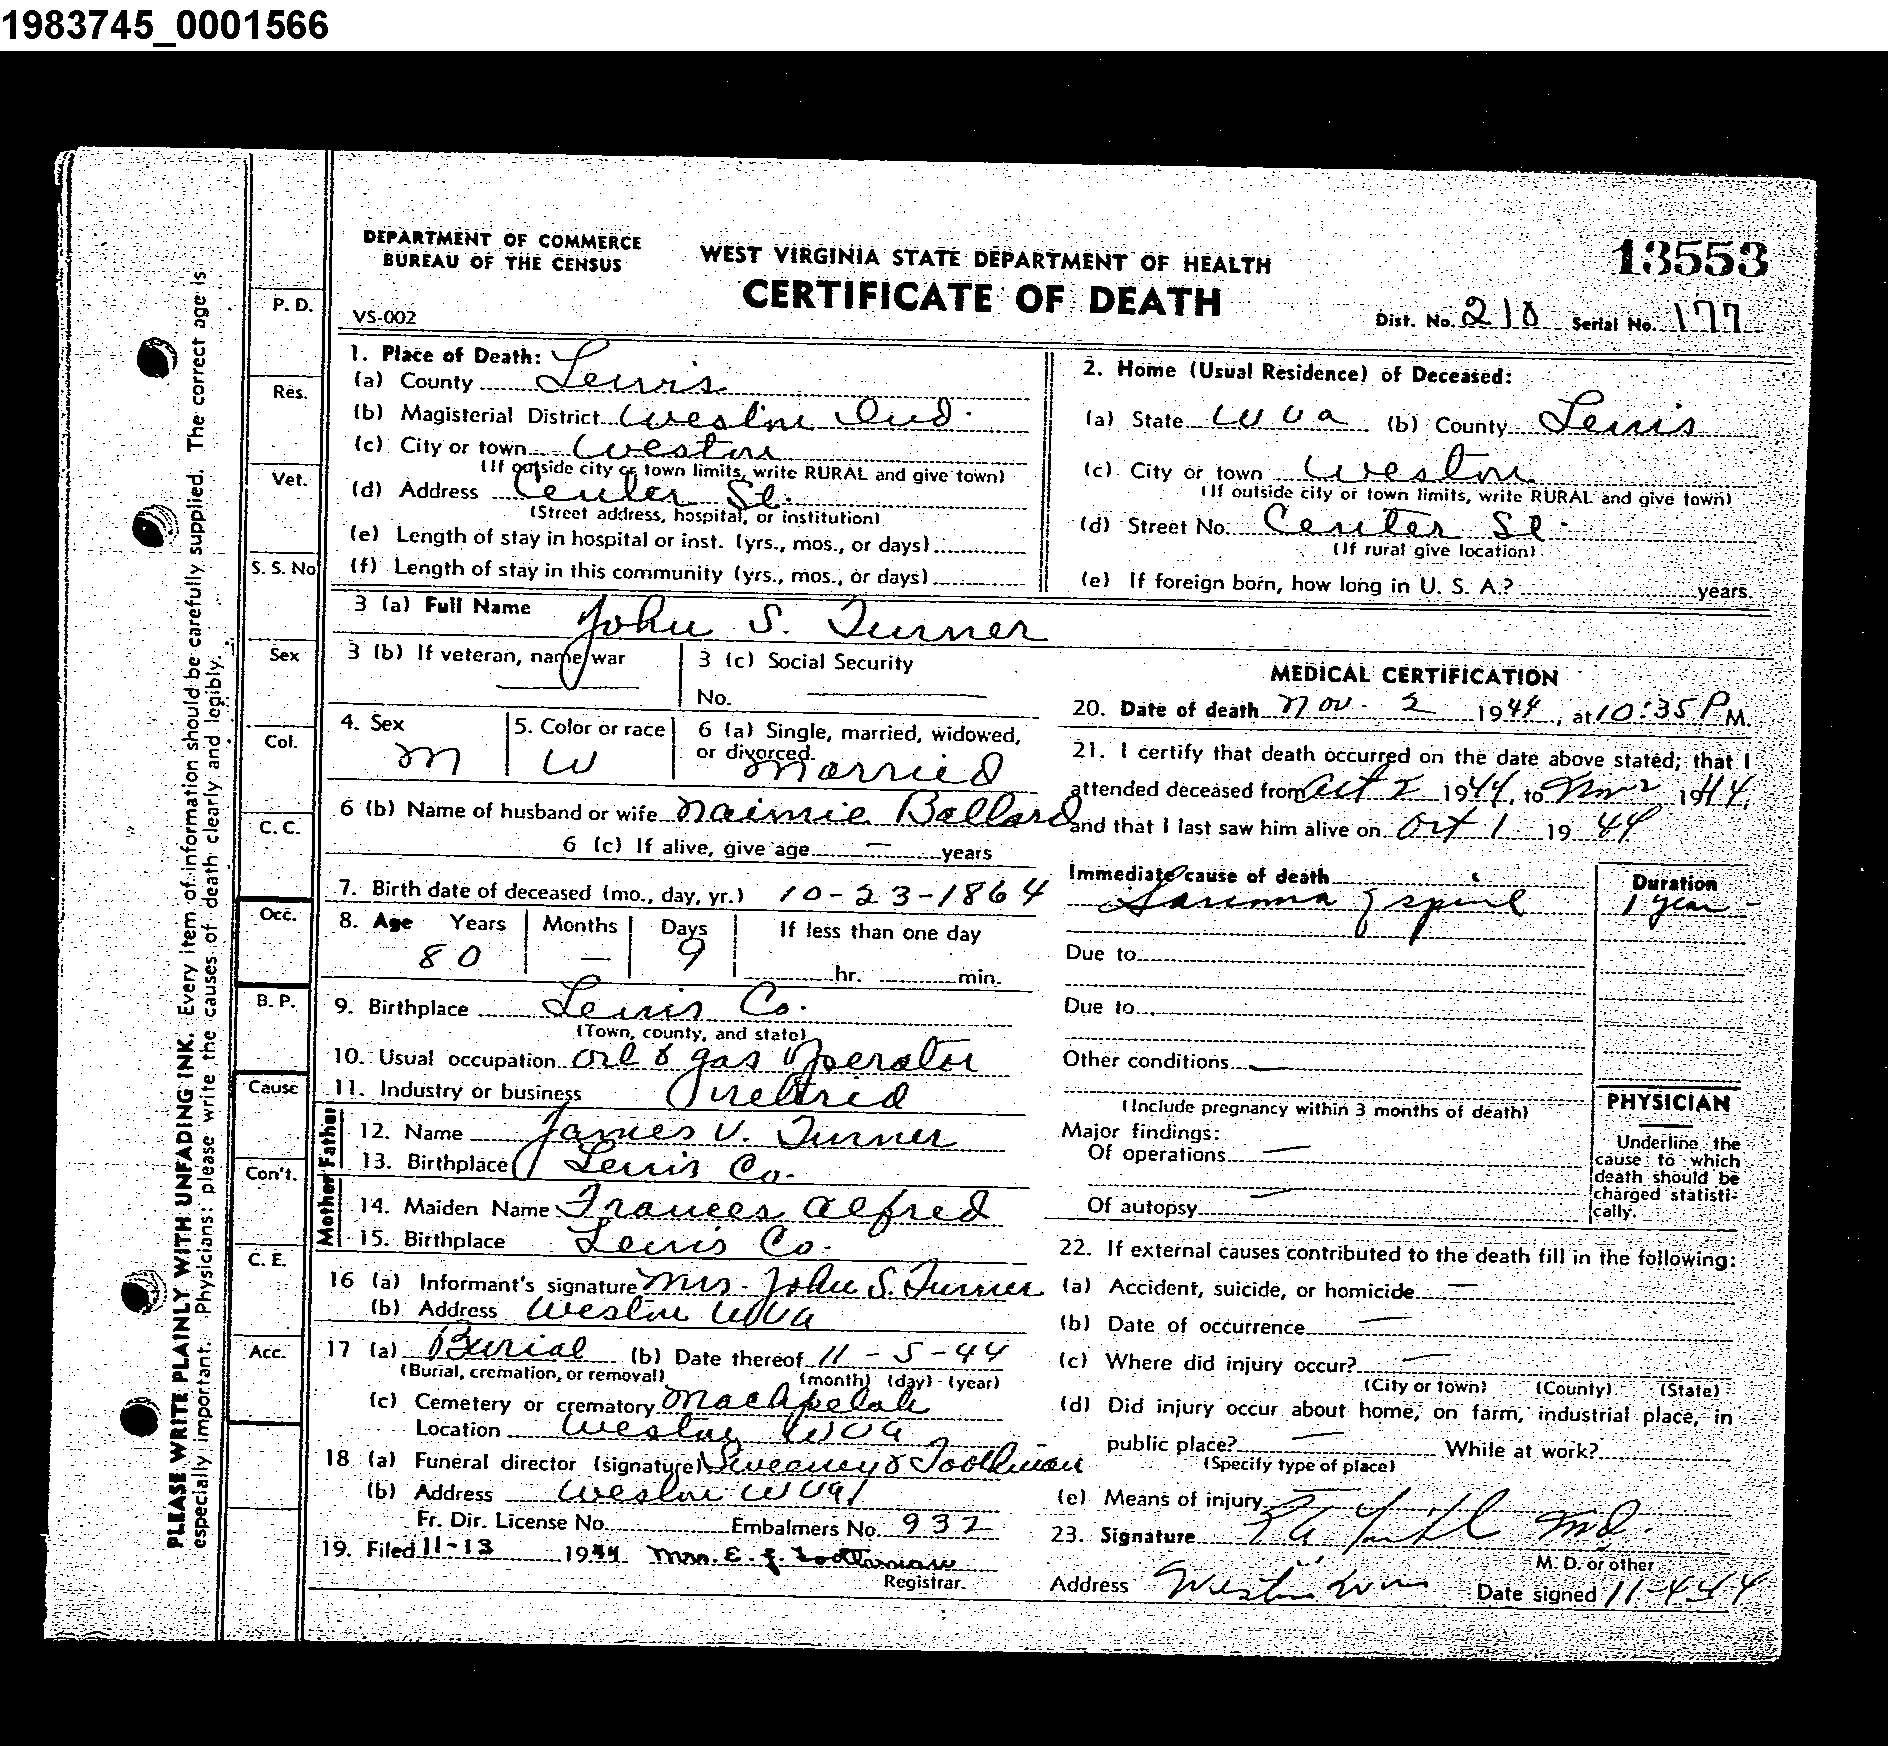 1983745_0001566
DEPARTMENT OF COMMERCE
BUREAU OF THE CENSUS
WEST VIRGINIA STATE DEPARTMENT OF HEALTH
13553
CERTIFICATE OF DEATH
VS-002
Dist. No. 210 Serial No. 177
PLEASE WRITE PLAINLY WITH UNFADING INK. Every item of information should be carefully supplied. The correct age is
especially important. Physicians: please write the causes of death clearly and legibly.
P. D.
Res.
Vet.
S. S. No
Sex
Col.
C. C.
Occ.
B. P.
Cause
Con't.
C. E.
Acc.
1. Place of Death:
(a) County Lewis
(b) Magisterial District Weston Ind.
(c) City or town Weston
(If outside city or town limits, write RURAL and give town)
(d) Address Center St.
(Street address, hospital, or institution)
(e) Length of stay in hospital or inst. (yrs., mos., or days)
(f) Length of stay in this community (yrs., mos., or days)
2. Home (Usual Residence) of Deceased:
(a) State W Va (b) County Lewis
(c) City or town Weston
(If outside city or town limits, write RURAL and give town)
(d) Street No. Center St.
(If rural give location)
(e) If foreign born, how long in U. S. A.? years.
3 (a) Full Name John S. Turner
3 (b) If veteran, name war
3 (c) Social Security
No.
4. Sex M
5. Color or race W
6 (a) Single, married, widowed,
or divorced. Married
6 (b) Name of husband or wife Naimie Ballard
6 (c) If alive, give age — years
7. Birth date of deceased (mo., day, yr.) 10-23-1864
8. Age Years Months Days If less than one day
80 — 9 hr. min.
9. Birthplace Lewis Co.
(Town, county, and state)
10. Usual occupation oil & gas operator
11. Industry or business retired
Father
12. Name James V. Turner
13. Birthplace Lewis Co.
Mother
14. Maiden Name Frances Alfred
15. Birthplace Lewis Co.
16 (a) Informant's signature Mrs. John S. Turner
(b) Address Weston W Va
17 (a) Burial (b) Date thereof 11-5-44
(Burial, cremation, or removal) (month) (day) (year)
(c) Cemetery or crematory Machpelah
Location Weston W Va
18 (a) Funeral director (signature) Sweeney & Toothman
(b) Address Weston W Va
Fr. Dir. License No. Embalmers No. 932
19. Filed 11-13 1944 Mrs. E. J. Toothman
Registrar.
MEDICAL CERTIFICATION
20. Date of death Nov. 2 1944, at 10:35 P M.
21. I certify that death occurred on the date above stated; that I
attended deceased from Oct 2 1944, to Nov 2 1944,
and that I last saw him alive on Oct 1 1944
Immediate cause of death
Sarcoma of spine
Duration
1 year
Due to
Due to
Other conditions —
(Include pregnancy within 3 months of death)
Major findings:
Of operations —
Of autopsy —
PHYSICIAN
Underline the
cause to which
death should be
charged statisti-
cally.
22. If external causes contributed to the death fill in the following:
(a) Accident, suicide, or homicide —
(b) Date of occurrence —
(c) Where did injury occur? —
(City or town) (County) (State)
(d) Did injury occur about home, on farm, industrial place, in
public place? — While at work?
(Specify type of place)
(e) Means of injury
23. Signature MD.
M. D. or other
Address Weston Date signed 11-4-44